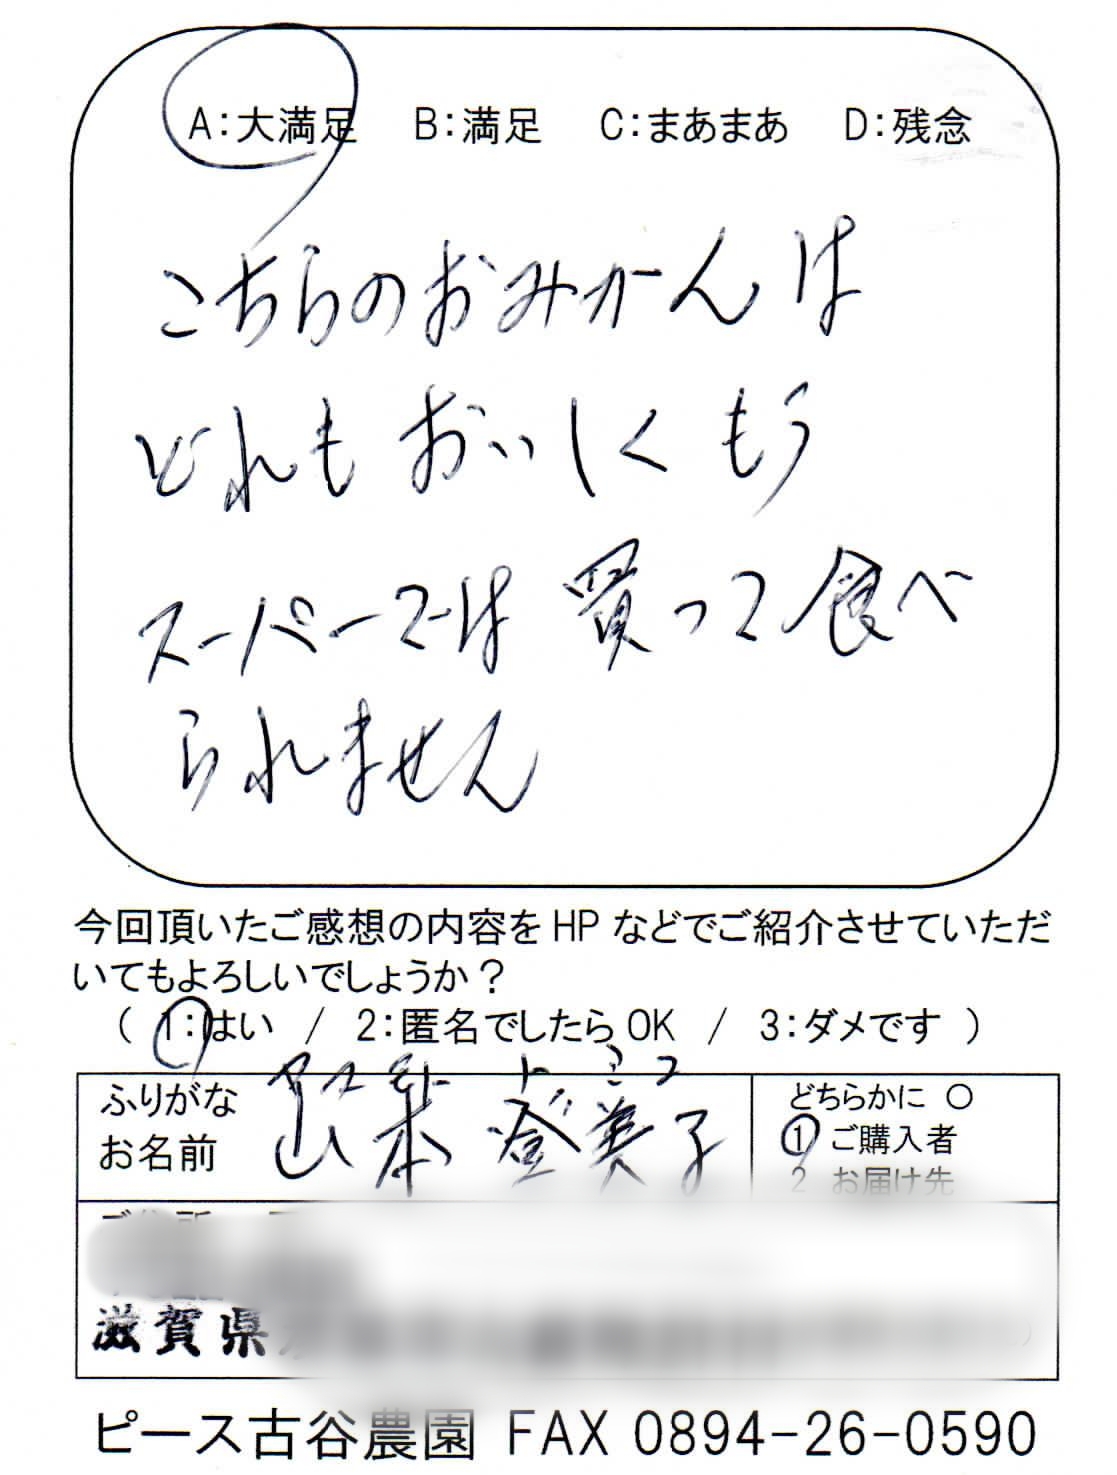 A：大満足　B：満足　C：まあまあ　D：残念
こちらのおみかんは
どれもおいしくもう
スーパーでは買って食べ
られません
今回頂いたご感想の内容をHPなどでご紹介させていただ
いてもよろしいでしょうか？
（ 1：はい / 2：匿名でしたらOK / 3：ダメです ）
ふりがな
お名前
山本 登美子
どちらかに ○
1 ご購入者
2 お届け先
滋賀県
ピース古谷農園 FAX 0894-26-0590